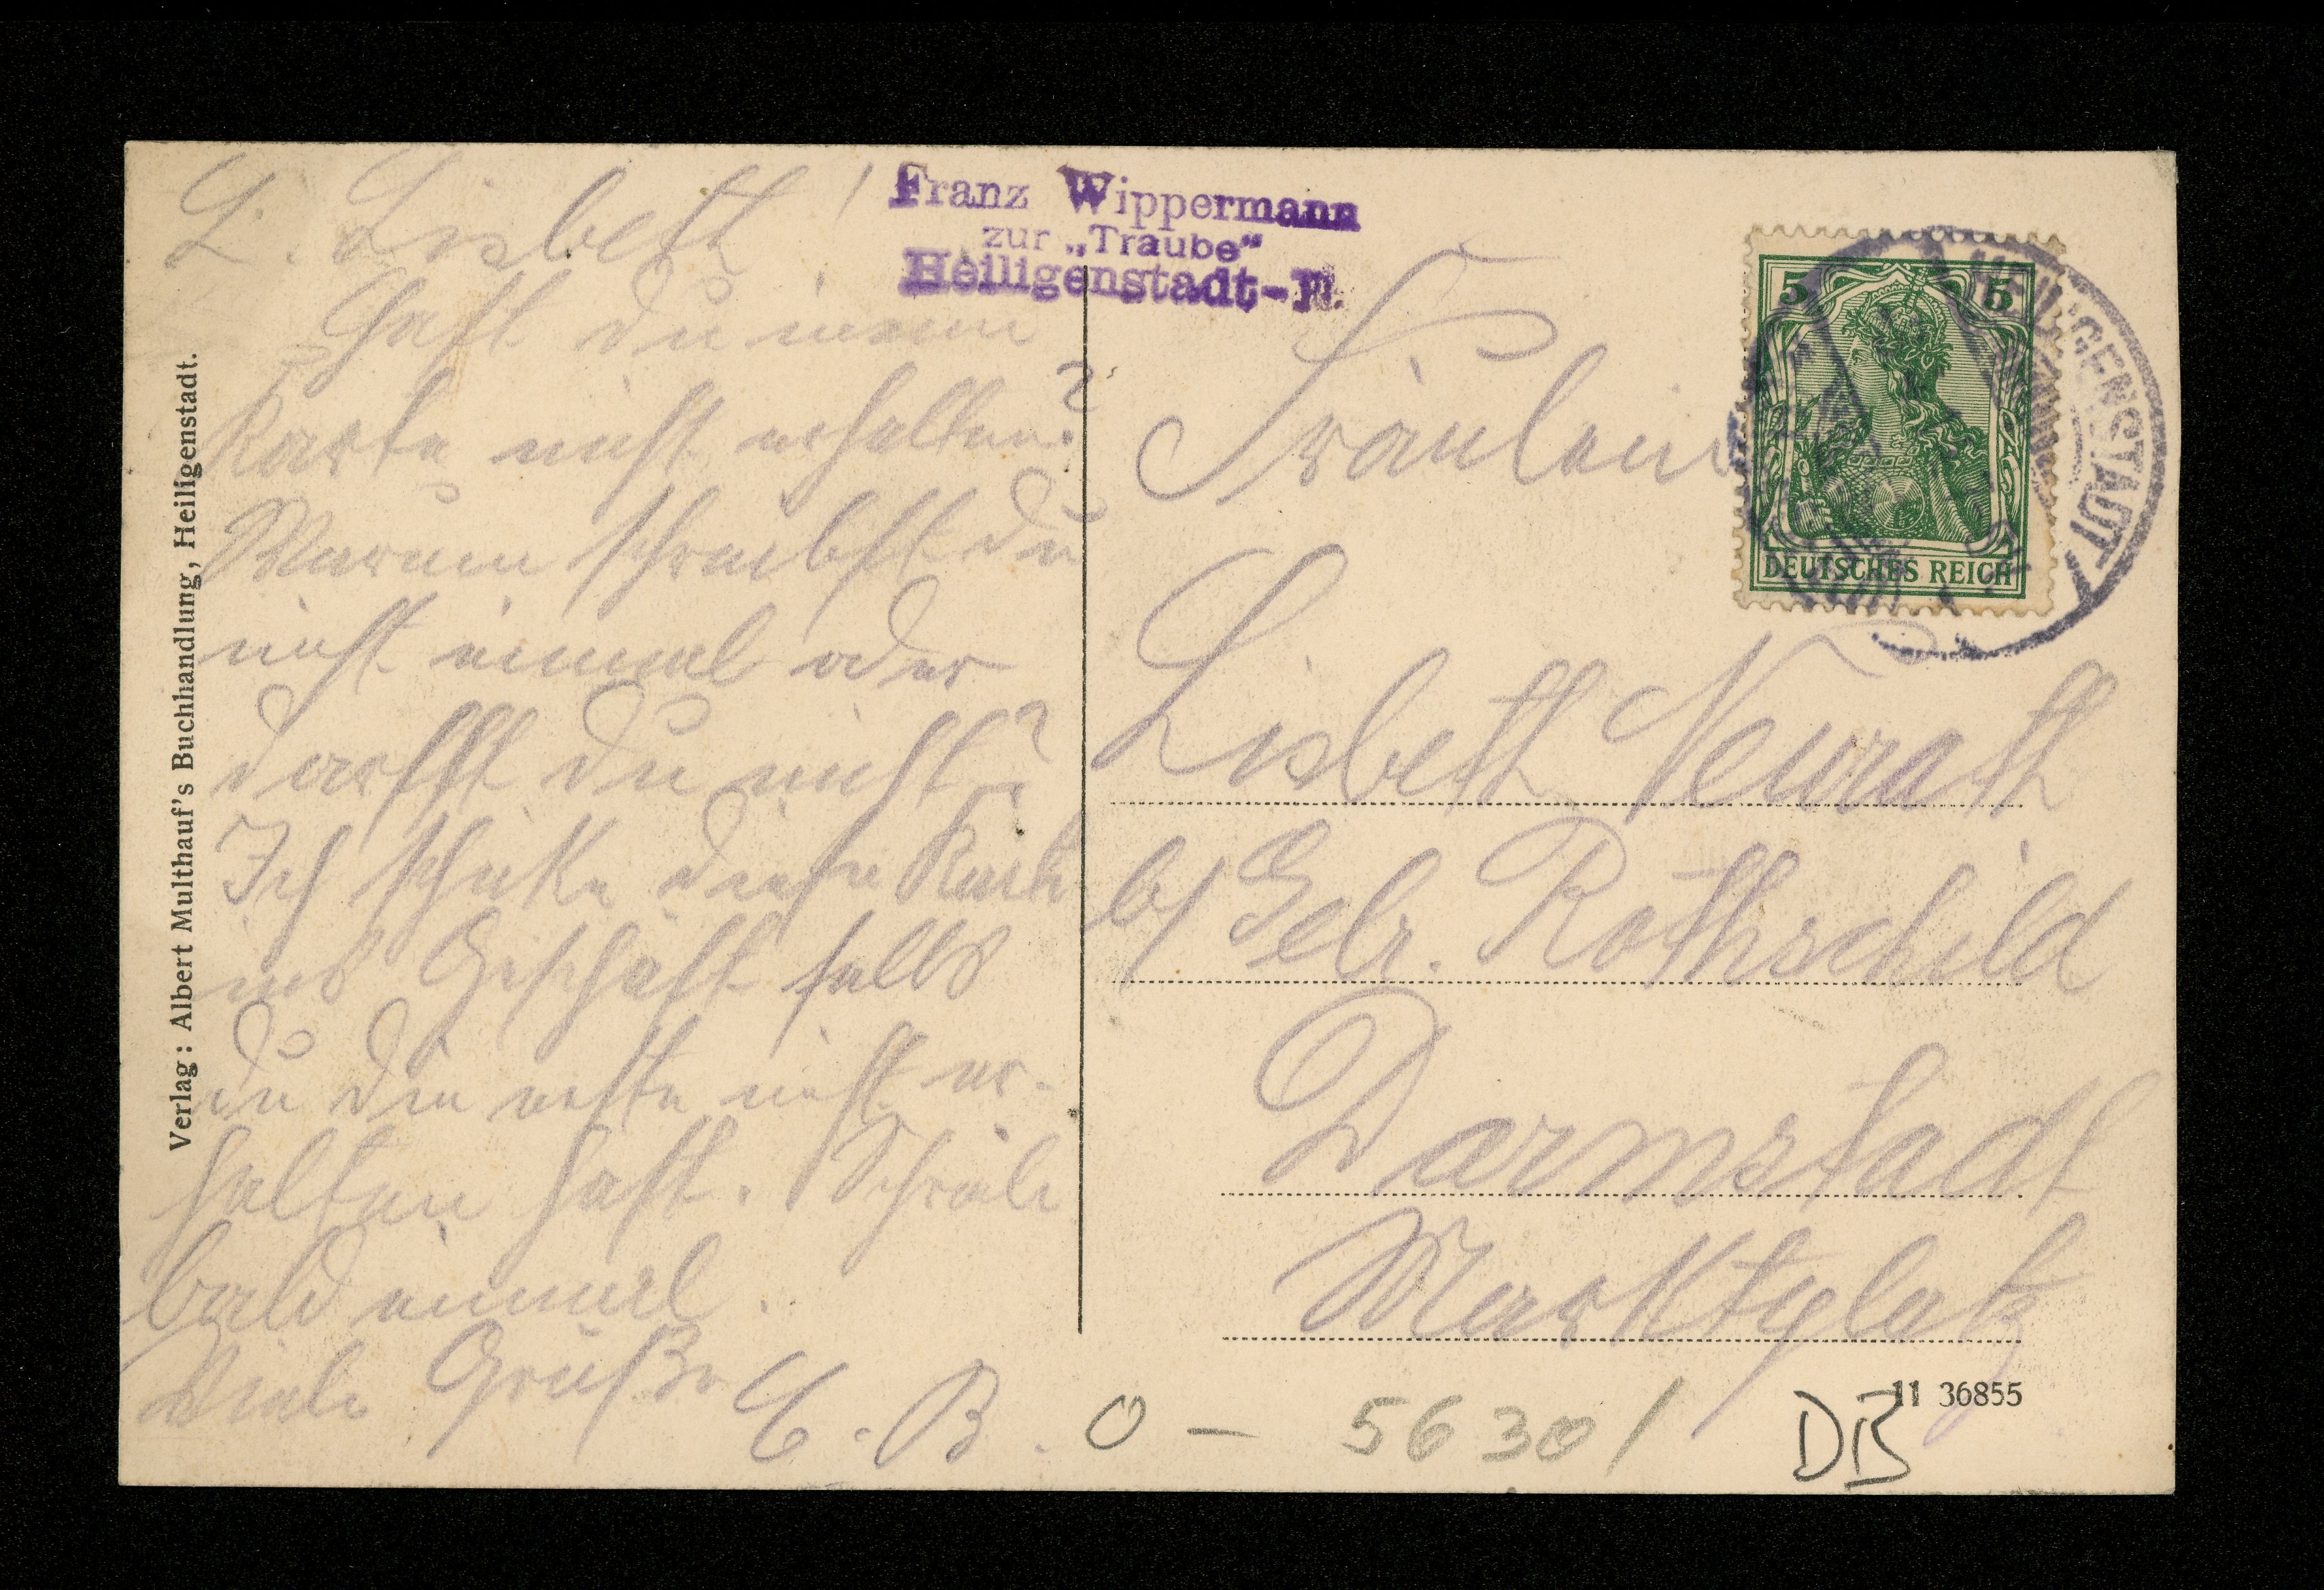 L. Lisbeth!
Hast du meine
Karte nicht erhalten?
Warum schreibst du
nicht einmal oder
darfst du nicht?
Ich schicke diese Karte
ins Geschäft falls
du die erste nicht er-
halten hast. Schreibe
bald einmal.
Viele Grüße E. B.
Verlag: Albert Multhauf's Buchhandlung, Heiligenstadt.
Franz Wippermann
zur „Traube“
Heiligenstadt-
5 5
DEUTSCHES REICH
HEILIGENSTADT
Fräulein
Lisbeth Neurath
b/ Gebr. Rothschild
Darmstadt
Marktplatz
11 36855
0 - 5630 /
DB